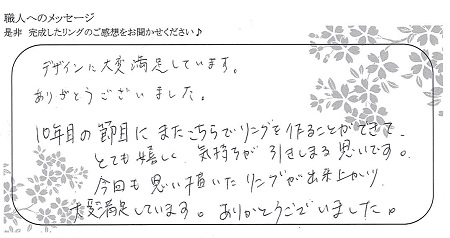 職人へのメッセージ
是非 完成したリングのご感想をお聞かせください♪
デザインに大変満足しています。
ありがとうございました。
10年目の節目にまたこちらでリングを作ることができて、
とても嬉しく、気持ちが引きしまる思いです。
今回も思い描いたリングが出来上がり、
大変満足しています。ありがとうございました。